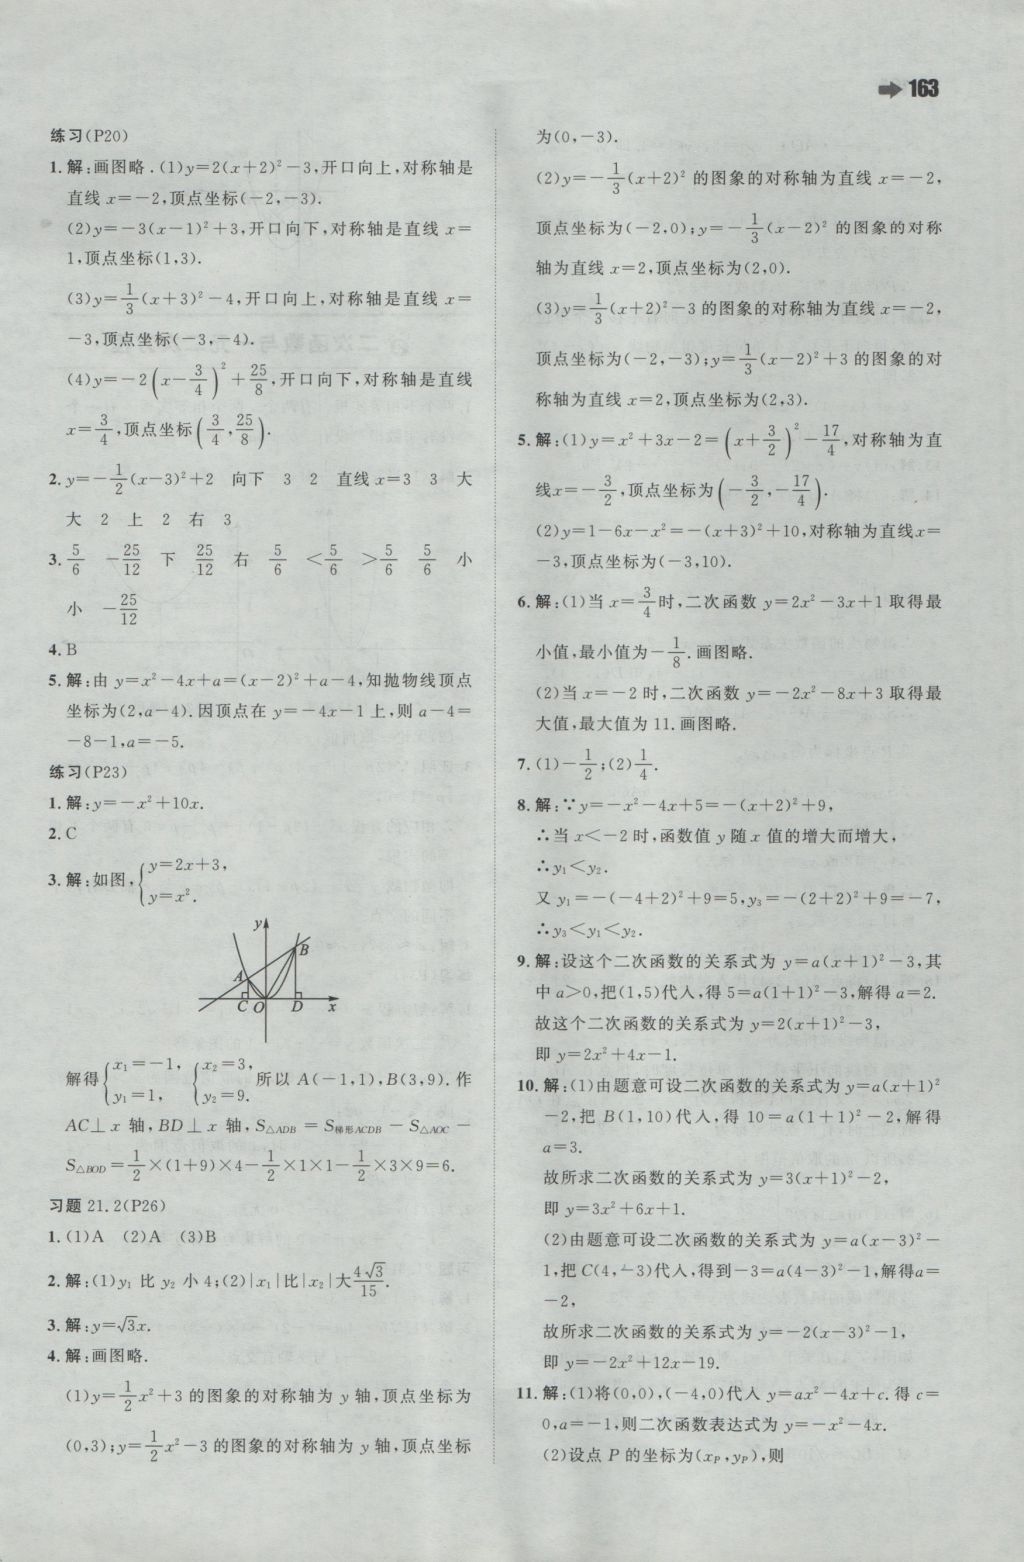 163
练习(P20)
1.解:画图略.(1)y=2(x+2)²-3,开口向上,对称轴是
直线 x=-2,顶点坐标(-2,-3).
(2)y=-3(x-1)²+3,开口向下,对称轴是直线 x=
1,顶点坐标(1,3).
(3)y=1/3(x+3)²-4,开口向上,对称轴是直线 x=
-3,顶点坐标(-3,-4).
(4)y=-2(x-3/4)²+25/8,开口向下,对称轴是直线
x=3/4,顶点坐标(3/4,25/8).
2.y=-1/2(x-3)²+2 向下 3 2 直线 x=3 3 大
大 2 上 2 右 3
3.5/6 -25/12 下 25/12 右 5/6 <5/6 >5/6 5/6 小
小 -25/12
4.B
5.解:由 y=x²-4x+a=(x-2)²+a-4,知抛物线顶点
坐标为(2,a-4).因顶点在 y=-4x-1 上,则 a-4=
-8-1,a=-5.
练习(P23)
1.解:y=-x²+10x.
2.C
3.解:如图,{y=2x+3,
y=x².
y
B
A
C O D x
解得{x₁=-1, {x₂=3,所以 A(-1,1),B(3,9).作
y₁=1, y₂=9.
AC⊥x 轴,BD⊥x 轴,S△ADB=S梯形ACDB-S△AOC-
S△BOD=1/2×(1+9)×4-1/2×1×1-1/2×3×9=6.
习题 21.2(P26)
1.(1)A (2)A (3)B
2.解:(1)y₁ 比 y₂ 小 4;(2)|x₁|比|x₂|大4√3/15.
3.解:y=√3x.
4.解:画图略.
(1)y=1/2x²+3 的图象的对称轴为 y 轴,顶点坐标为
(0,3);y=1/2x²-3 的图象的对称轴为 y 轴,顶点坐标
为(0,-3).
(2)y=-1/3(x+2)² 的图象的对称轴为直线 x=-2,
顶点坐标为(-2,0);y=-1/3(x-2)² 的图象的对称
轴为直线 x=2,顶点坐标为(2,0).
(3)y=1/3(x+2)²-3 的图象的对称轴为直线 x=-2,
顶点坐标为(-2,-3);y=1/3(x-2)²+3 的图象的对
称轴为直线 x=2,顶点坐标为(2,3).
5.解:(1)y=x²+3x-2=(x+3/2)²-17/4,对称轴为直
线x=-3/2,顶点坐标为(-3/2,-17/4).
(2)y=1-6x-x²=-(x+3)²+10,对称轴为直线x=
-3,顶点坐标为(-3,10).
6.解:(1)当 x=3/4时,二次函数 y=2x²-3x+1 取得最
小值,最小值为-1/8.画图略.
(2)当 x=-2 时,二次函数 y=-2x²-8x+3 取得最
大值,最大值为 11.画图略.
7.(1)-1/2;(2)1/4.
8.解:∵y=-x²-4x+5=-(x+2)²+9,
∴当 x<-2 时,函数值 y 随 x 值的增大而增大,
∴y₁<y₂.
又 y₁=-(-4+2)²+9=5,y₃=-(2+2)²+9=-7,
∴y₃<y₁<y₂.
9.解:设这个二次函数的关系式为 y=a(x+1)²-3,其
中 a>0,把(1,5)代入,得 5=a(1+1)²-3,解得 a=2.
故这个二次函数的关系式为 y=2(x+1)²-3,
即 y=2x²+4x-1.
10.解:(1)由题意可设二次函数的关系式为 y=a(x+1)²
-2,把 B(1,10)代入,得 10=a(1+1)²-2,解得
a=3.
故所求二次函数的关系式为 y=3(x+1)²-2,
即 y=3x²+6x+1.
(2)由题意可设二次函数的关系式为 y=a(x-3)²-
1,把 C(4,-3)代入,得到-3=a(4-3)²-1,解得a=
-2,
故所求二次函数的关系式为 y=-2(x-3)²-1,
即 y=-2x²+12x-19.
11.解:(1)将(0,0),(-4,0)代入 y=ax²-4x+c.得 c=
0,a=-1,则二次函数表达式为 y=-x²-4x.
(2)设点 P 的坐标为(xP,yP),则